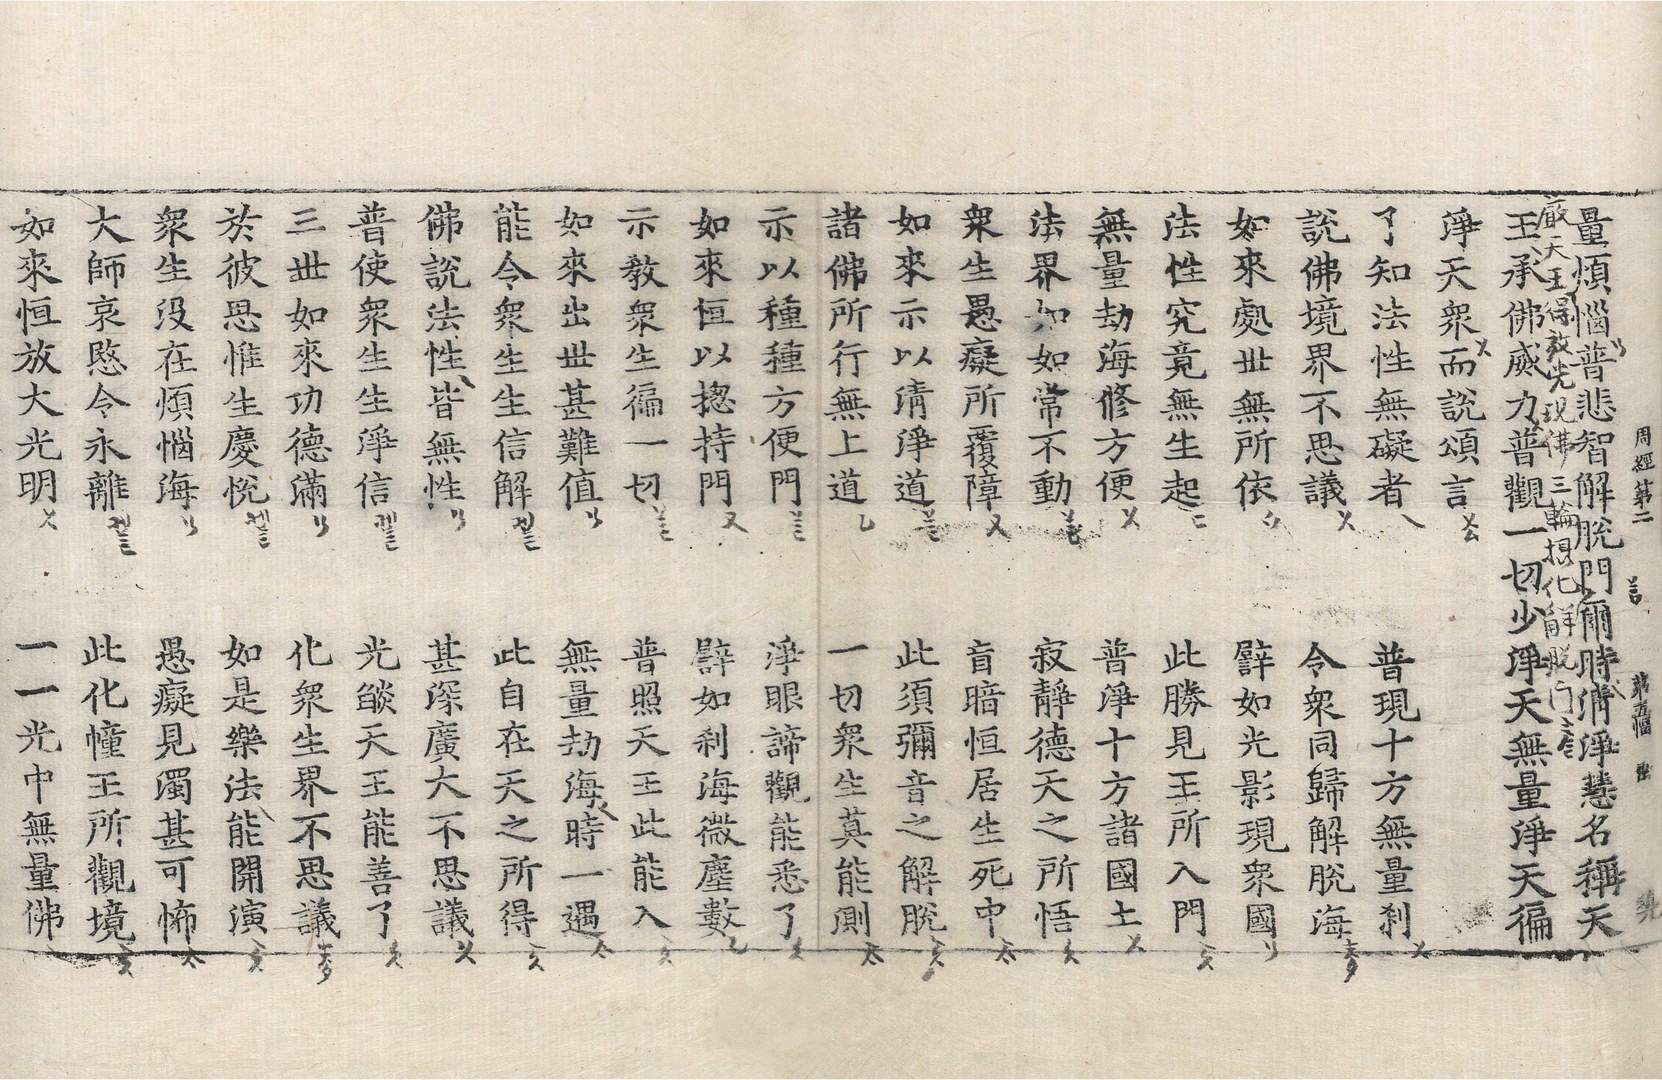 周經第二
第五幅
量煩惱普悲智解脫門爾時清淨慧名稱天
嚴天王得放光現佛三輪攝化解脫門
王承佛威力普觀一切少淨天無量淨天徧
淨天衆而說頌言
了知法性無礙者 普現十方無量刹
說佛境界不思議 令衆同歸解脫海
如來處世無所依 譬如光影現衆國
法性究竟無生起 此勝見王所入門
無量劫海修方便 普淨十方諸國土
法界如如常不動 寂靜德天之所悟
衆生愚癡所覆障 盲暗恒居生死中
如來示以清淨道 此須彌音之解脫
諸佛所行無上道 一切衆生莫能測
示以種種方便門 淨眼諦觀能悉了
如來恒以摠持門 譬如刹海微塵數
示教衆生徧一切 普照天王此能入
如來出世甚難值 無量劫海時一遇
能令衆生生信解 此自在天之所得
佛說法性皆無性 甚深廣大不思議
普使衆生生淨信 光燄天王能善了
三世如來功德滿 化衆生界不思議
於彼思惟生慶悅 如是樂法能開演
衆生没在煩惱海 愚癡見濁甚可怖
大師哀愍令永離 此化幢王所觀境
如來恒放大光明 一一光中無量佛